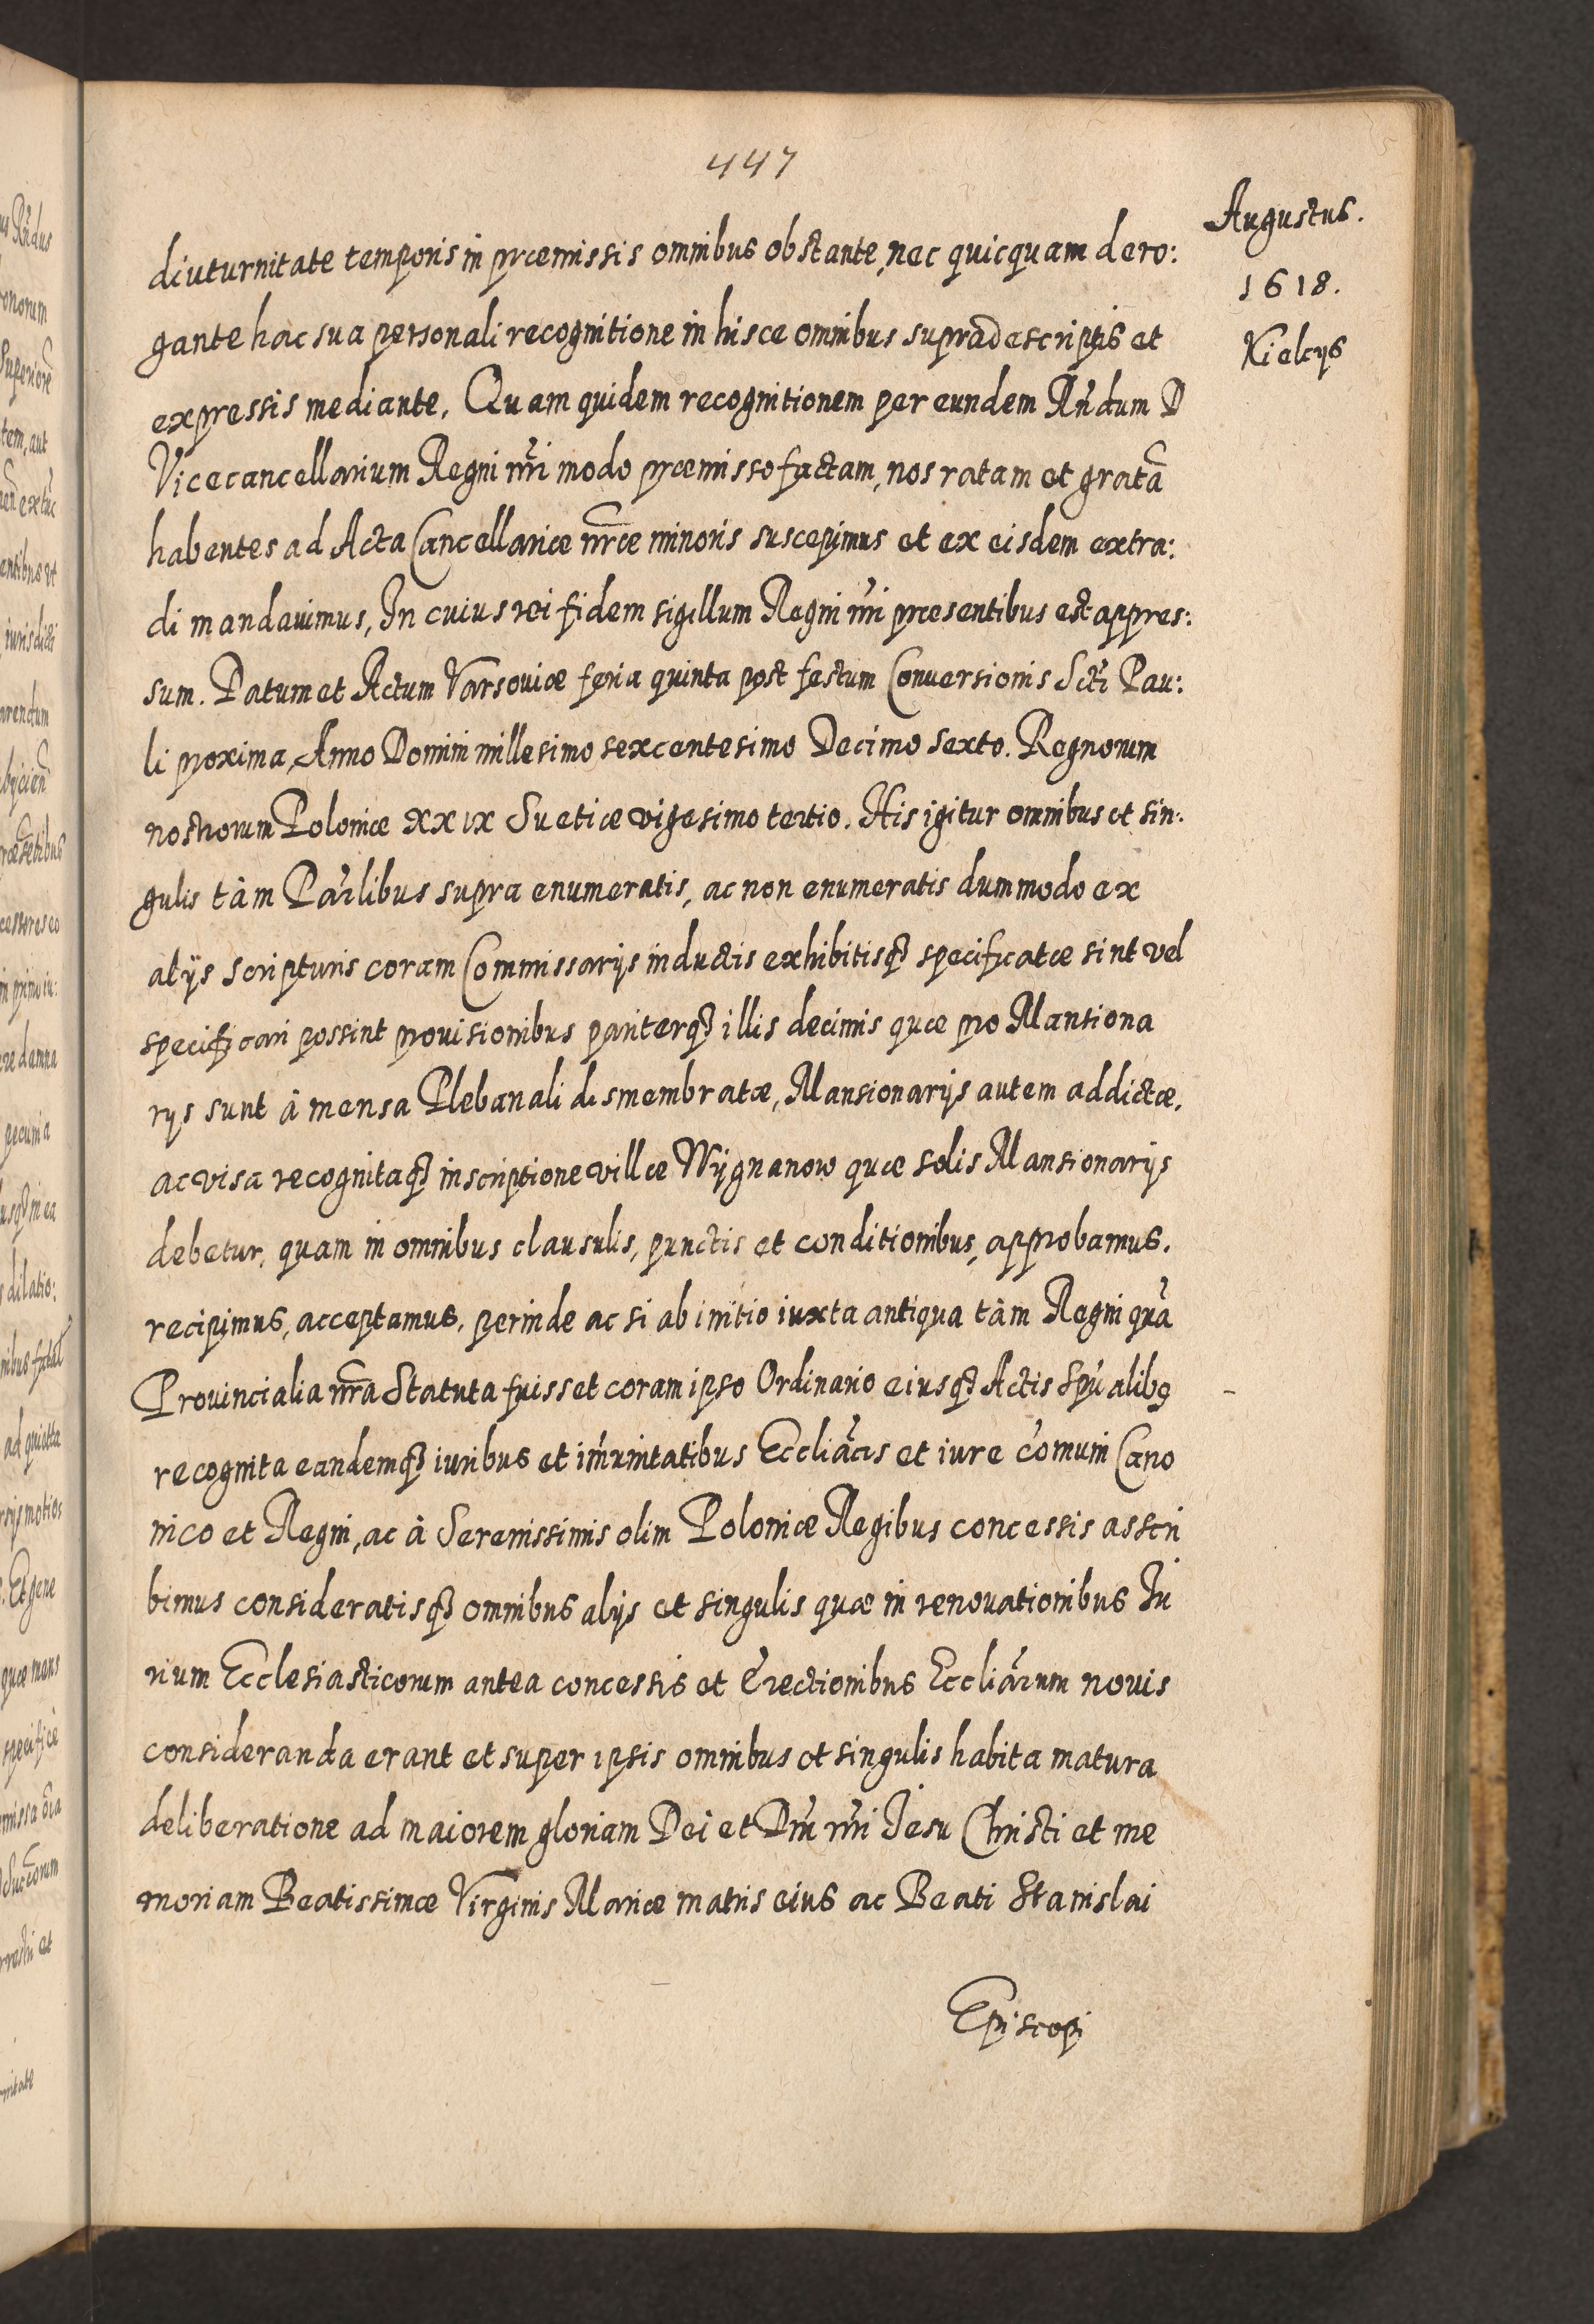 447
Augustus.
1618.
Kielcys
diuturnitate temporis in præmissis omnibus obstante, nec quicquam dero:
gante hac sua personali recognitione in hisce omnibus supradescriptis et
expressis mediante, Quam quidem recognitionem per eundem Rn̄dum D
Vicecancellarium Regni nr̄i modo præmisso factam, nos ratam et gratā
habentes ad Acta Cancellariæ nr̄æ minoris suscepimus et ex eisdem extra:
di mandauimus, In cuius rei fidem sigillum Regni nr̄i præsentibus est appres:
sum. Datum et Actum Varsouiæ feria quinta post festum Conuersionis Scti Pau:
li proxima, Anno Domini millesimo sexcentesimo Decimo sexto. Regnorum
nostrorum Poloniæ XXIX Suetiæ vigesimo tertio. His igitur omnibus et sin:
gulis tàm Par̄libus supra enumeratis, ac non enumeratis dummodo ex
alijs scripturis coram Commissarijs inductis exhibitisq; specificatæ sint vel
specificari possint prouisionibus pariterq; illis decimis quæ pro Mansiona
rys sunt à mensa Plebanali dismembratæ, Mansionarijs autem addictæ.
ac visa recognitaq; inscriptione villæ Wÿgnanow quæ solis Mansionarijs
debetur, quam in omnibus clausulis, punctis et conditionibus, approbamus.
recipimus, acceptamus, perinde ac si ab initio iuxta antiqua tàm Regni quā
Prouincialia nr̄a Statuta fuisset coram ipso Ordinario eiusq; Actis Spūalibꝯ
recognita eandemq; iuribus et im̄unitatibus Eccliācis et iure cōmuni Cano
nico et Regni, ac à Serenissimis olim Poloniæ Regibus concessis asscri
bimus consideratisq; omnibus alijs et singulis quæ in renouationibus Iu
rium Ecclesiasticorum antea concessis et Erectionibus Eccliārum nouis
consideranda erant et super ipsis omnibus et singulis habita matura
deliberatione ad maiorem gloriam Dei et Dn̄i nr̄i Jesu Christi et me
moriam Beatissimæ Virginis Mariæ matris eius ac Beati Stanislai
Episcopi